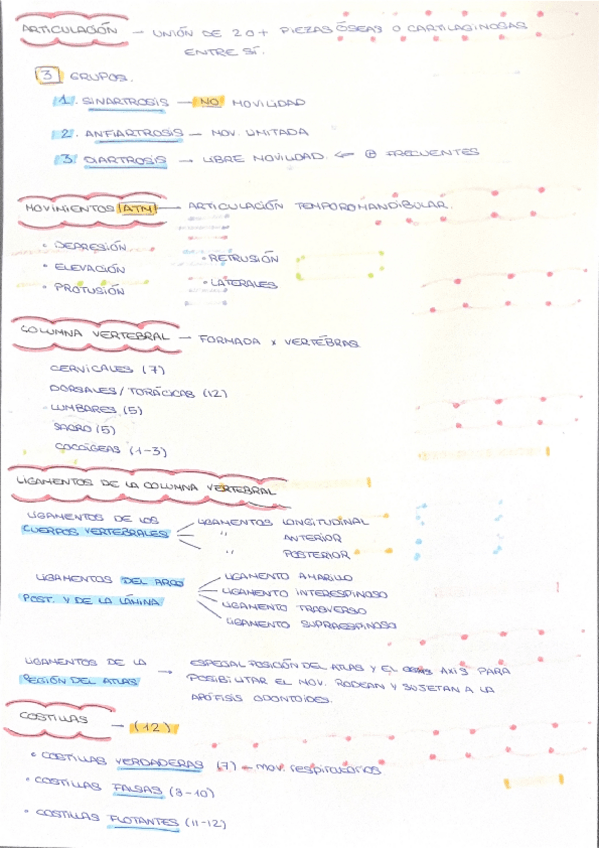 ARTICULACIÓN — UNIÓN DE 2 O + PIEZAS ÓSEAS O CARTILAGINOSAS
ENTRE SÍ.
3 GRUPOS.
1. SINARTROSIS — NO MOVILIDAD
2. ANFIARTROSIS — MOV. LIMITADA
3. DIARTROSIS → LIBRE MOVILIDAD ← ⊕ FRECUENTES
MOVIMIENTOS (ATM) — ARTICULACIÓN TEMPOROMANDIBULAR.
• DEPRESIÓN
• RETRUSIÓN
• ELEVACIÓN
• LATERALES
• PROTUSIÓN
COLUMNA VERTEBRAL — FORMADA x VERTÉBRAS
CERVICALES (7)
DORSALES / TORÁCICAS (12)
LUMBARES (5)
SACRO (5)
COCCÍGEAS (1-3)
LIGAMENTOS DE LA COLUMNA VERTEBRAL
LIGAMENTOS DE LOS
CUERPOS VERTEBRALES
LIGAMENTOS LONGITUDINAL
" ANTERIOR
" POSTERIOR
LIGAMENTOS DEL ARCO
POST. Y DE LA LÁMINA
LIGAMENTO AMARILLO
LIGAMENTO INTERESPINOSO
LIGAMENTO TRASVERSO
LIGAMENTO SUPRAESPINOSO
LIGAMENTOS DE LA
REGIÓN DEL ATLAS
→ ESPECIAL POSICIÓN DEL ATLAS Y EL AXIS PARA
POSIBILITAR EL MOV. RODEAN Y SUJETAN A LA
APÓFISIS ODONTOIDES.
COSTILLAS — (12)
• COSTILLAS VERDADERAS (7) — mov. respiratorios
• COSTILLAS FALSAS (8-10)
• COSTILLAS FLOTANTES (11-12)